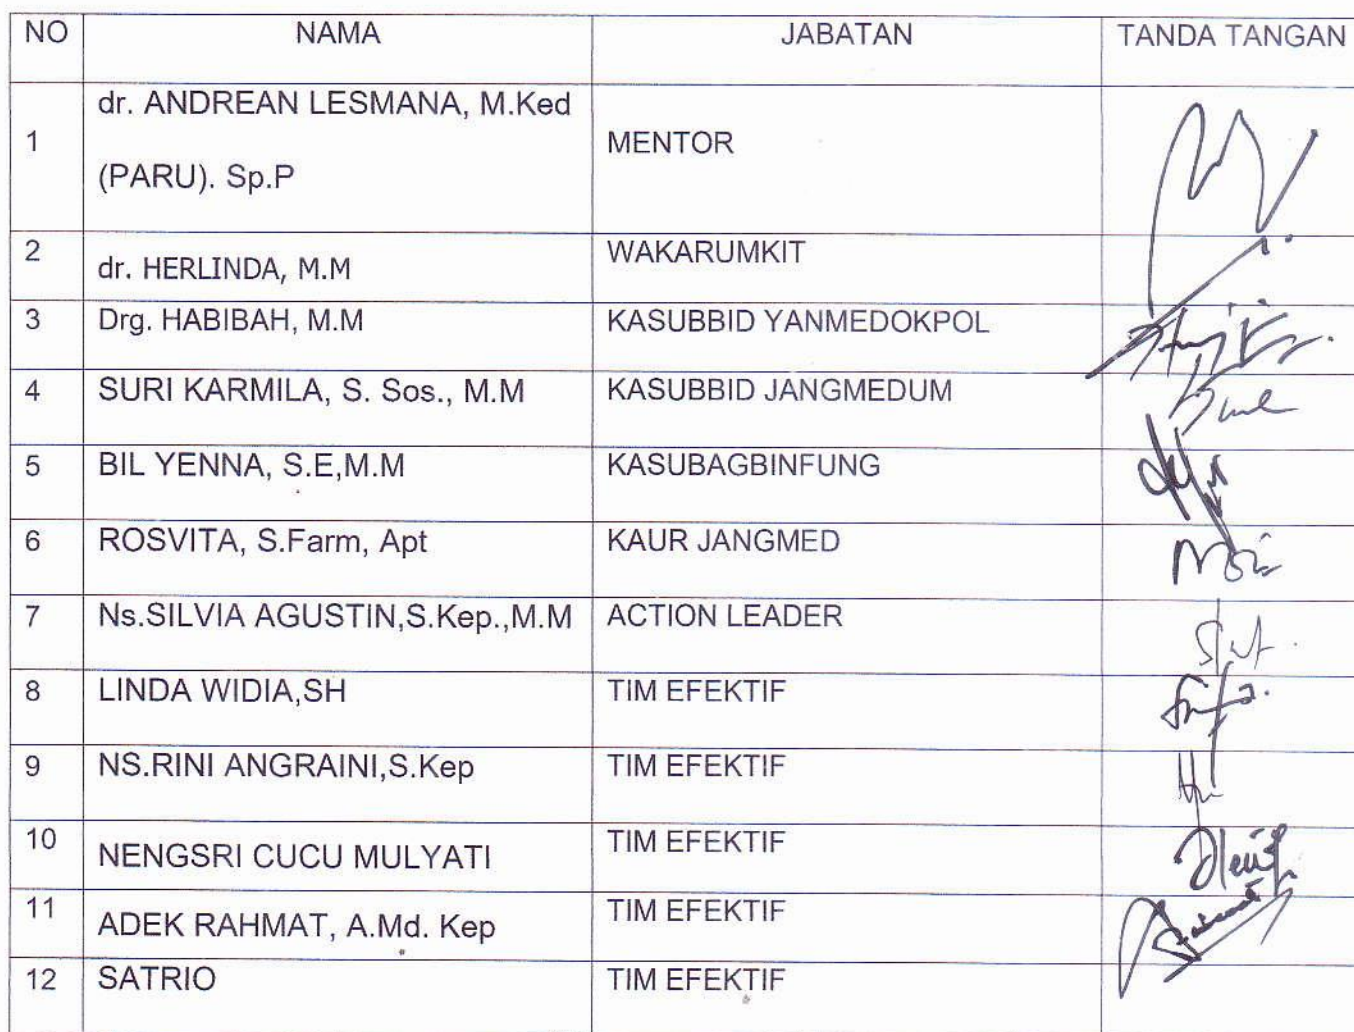 NO NAMA JABATAN TANDA TANGAN
1 dr. ANDREAN LESMANA, M.Ked
(PARU). Sp.P MENTOR
2 dr. HERLINDA, M.M WAKARUMKIT
3 Drg. HABIBAH, M.M KASUBBID YANMEDOKPOL
4 SURI KARMILA, S. Sos., M.M KASUBBID JANGMEDUM
5 BIL YENNA, S.E,M.M KASUBAGBINFUNG
6 ROSVITA, S.Farm, Apt KAUR JANGMED
7 Ns.SILVIA AGUSTIN,S.Kep.,M.M ACTION LEADER
8 LINDA WIDIA,SH TIM EFEKTIF
9 NS.RINI ANGRAINI,S.Kep TIM EFEKTIF
10 NENGSRI CUCU MULYATI TIM EFEKTIF
11 ADEK RAHMAT, A.Md. Kep TIM EFEKTIF
12 SATRIO TIM EFEKTIF